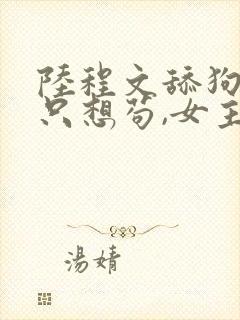 陸程文舔狗
只想苟,女主
湯婧